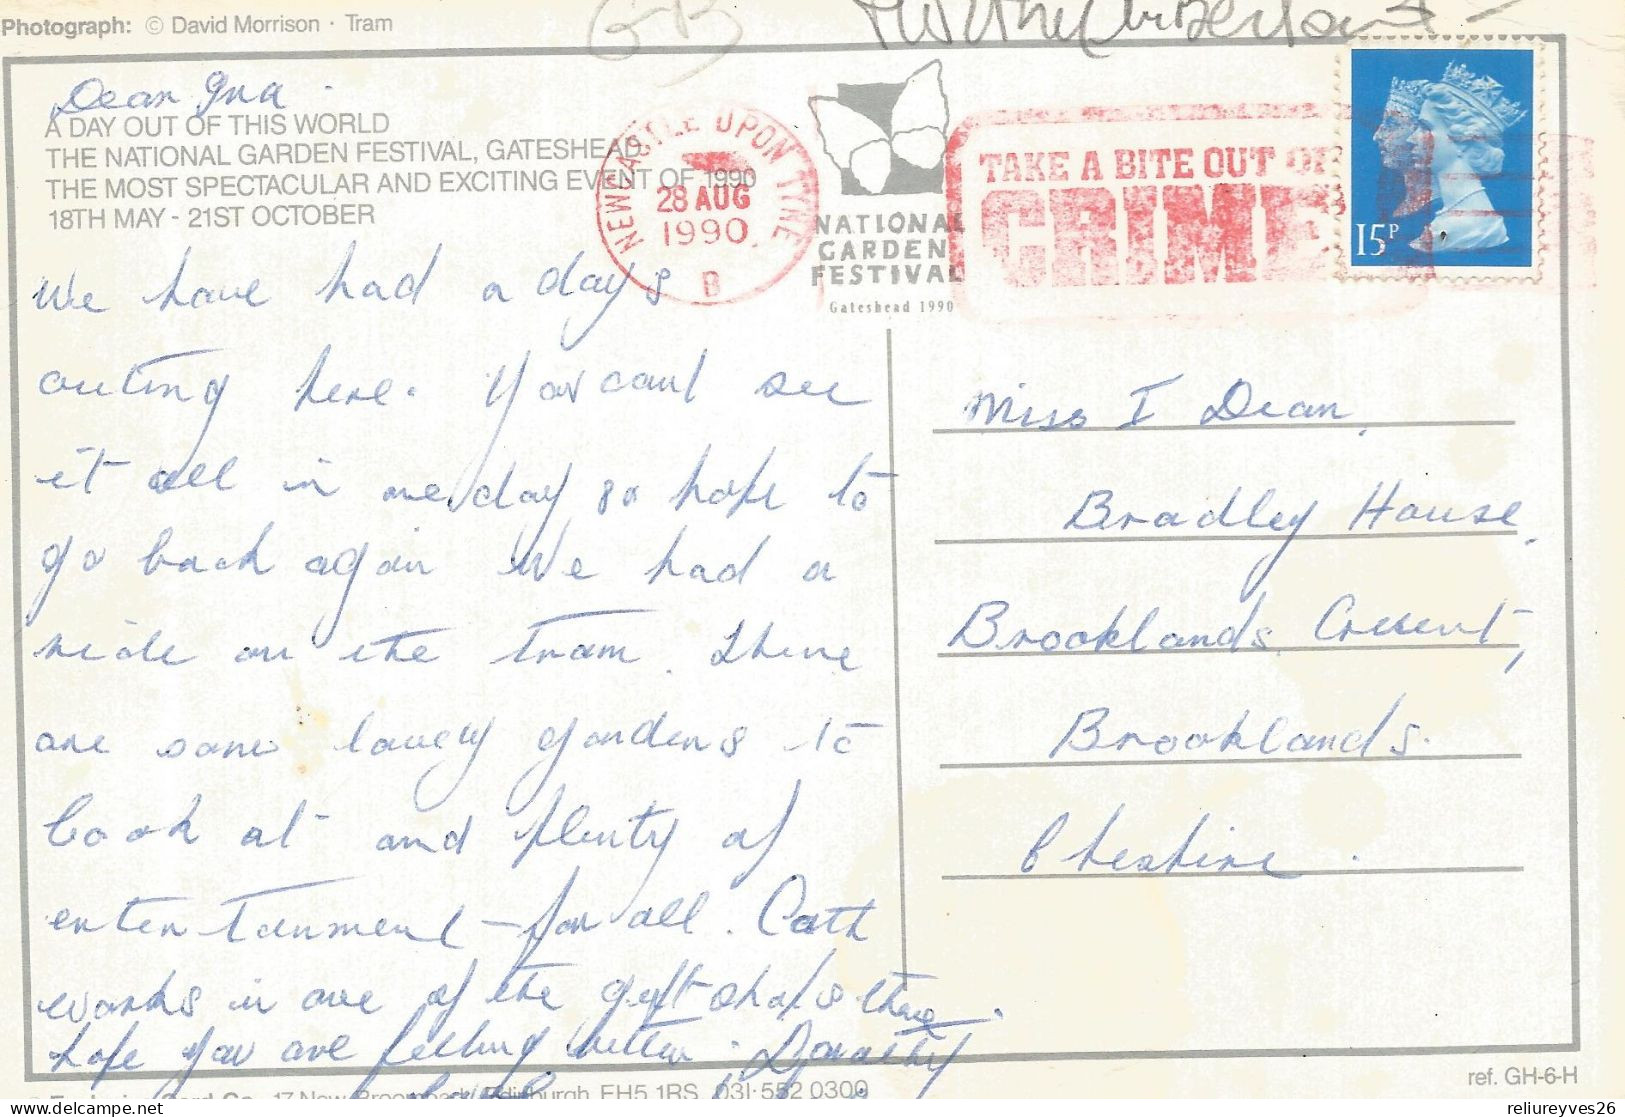 Photograph: © David Morrison · Tram
GB
Dear Ina.
A DAY OUT OF THIS WORLD
THE NATIONAL GARDEN FESTIVAL, GATESHEAD
THE MOST SPECTACULAR AND EXCITING EVENT OF 1990
18TH MAY - 21ST OCTOBER
NEWCASTLE UPON TYNE
28 AUG
1990
B
NATIONAL
GARDEN
FESTIVAL
Gateshead 1990
TAKE A BITE OUT OF
CRIME
15P
We have had a days
outing here. You cant see
it all in one day so hope to
go back again We had a
ride on the Tram. There
are some lovely gardens to
look at and plenty of
entertanment – for all. Cath
works in one of the gift shops there.
hope you are feeling better. Dorothy
Miss I Dean,
Bradley House,
Brooklands Cresent,
Brooklands.
Cheshire.
17 New Broompark, Edinburgh EH5 1RS 031·552 0300
ref. GH-6-H
reliureyves26